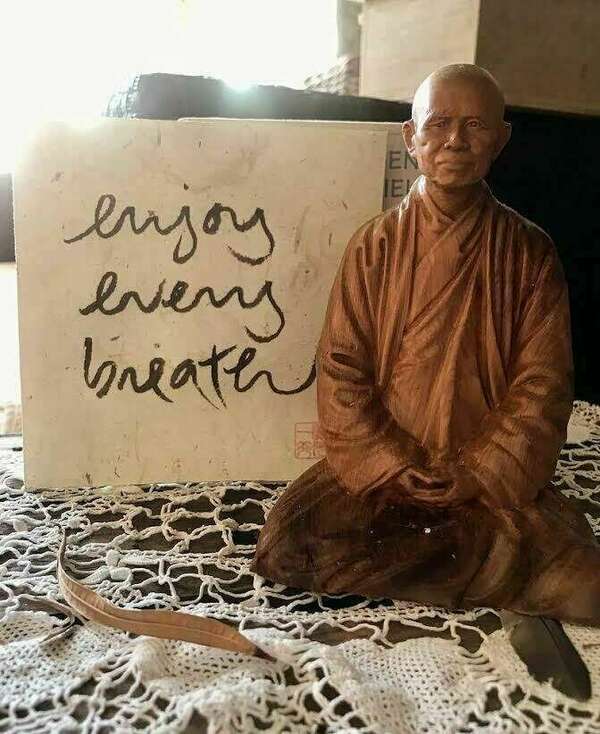 enjoy
every
breath